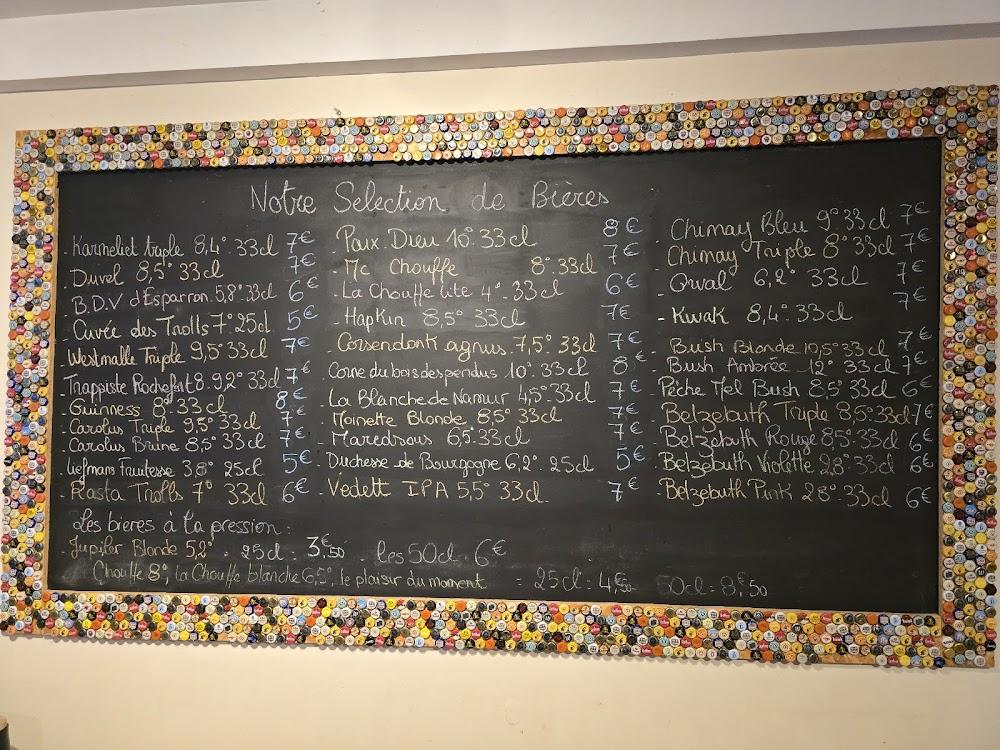 Notre Selection de Bières
Karmeliet triple 8,4° 33cl 7€
Duvel 8,5° 33cl 7€
B.D.V d'Esparron. 5,8° 33cl 6€
Cuvée des Trolls 7° 25cl 5€
Westmalle Triple 9,5° 33cl 7€
Trappiste Rochefort 8. 9,2° 33cl 7€
- Guinness 8° 33cl 8€
- Carolus Triple 9,5° 33cl 7€
- Carolus Brune 8,5° 33cl 7€
Liefmam Fruitesse 3,8° 25cl 5€
- Rasta Trolls 7° 33cl 6€
Paix. Dieu 10° 33cl 8€
- Mc Chouffe 8° 33cl 7€
- La Chouffe lite 4° 33cl 6€
- Hapkin 8,5° 33cl 7€
- Corsendonk agnus 7,5° 33cl 7€
- Corne du bois des pendus 10° 33cl 8€
- La Blanche de Namur 4,5° 33cl 7€
- Moinette Blonde 8,5° 33cl 7€
- Maredsous 6,5° 33cl 7€
- Duchesse de Bourgogne 6,2° 25cl 5€
- Vedett IPA 5,5° 33cl 7€
- Chimay Bleu 9° 33cl 7€
- Chimay Triple 8° 33cl 7€
- Orval 6,2° 33cl 7€
- Kwak 8,4° 33cl 7€
- Bush Blonde 10,5° 33cl 7€
- Bush Ambrée 12° 33cl 7€
- Pêche Mel Bush 8,5 33cl 6€
- Belzebuth Triple 8,5° 33cl 7€
- Belzebuth Rouge 8,5° 33cl 6€
- Belzebuth Violette 2,8° 33cl 6€
- Belzebuth Pink 2,8° 33cl 6€
Les bieres à la pression :
- Jupiler Blonde 5,2° = 25cl = 3€,50 les 50cl = 6€
Chouffe 8°, La Chouffe blanche 6,5°, le plaisir du moment = 25cl = 4€,50 50cl = 8€,50